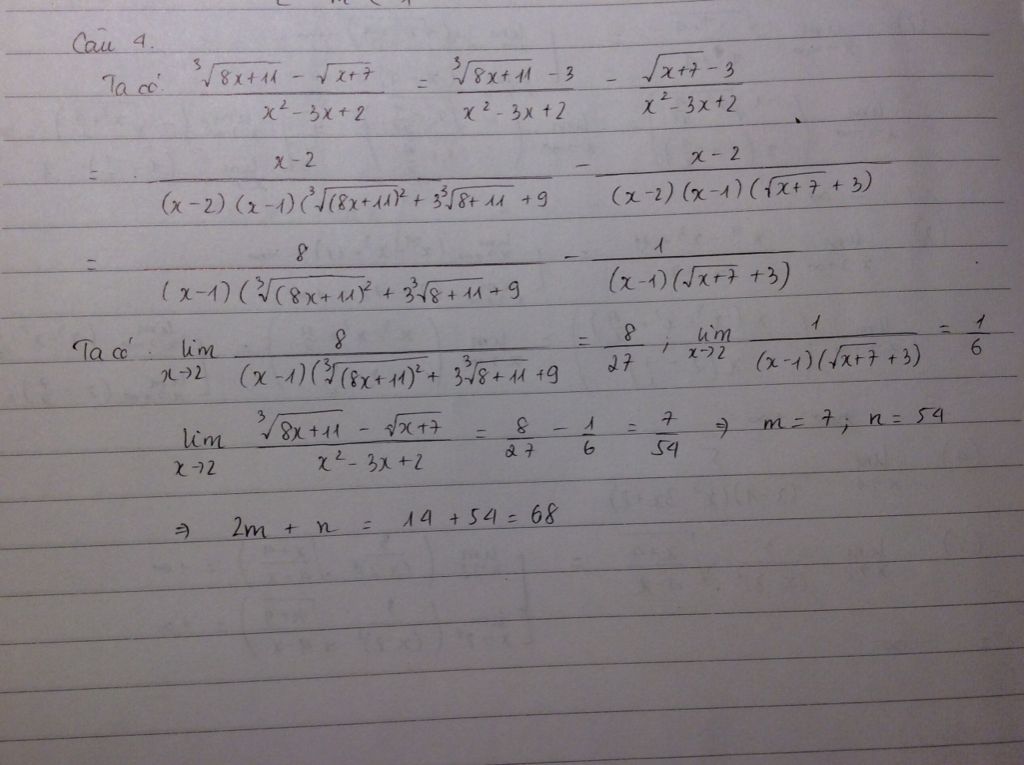 Câu 4.
Ta có: (∛(8x+11) - √(x+7))/(x² - 3x + 2) = (∛(8x+11) - 3)/(x² - 3x + 2) - (√(x+7) - 3)/(x² - 3x + 2)
= (x-2)/((x-2)(x-1)(∛((8x+11)²) + 3∛(8+11) + 9) - (x-2)/((x-2)(x-1)(√(x+7) + 3))
= 8/((x-1)(∛((8x+11)²) + 3∛(8+11) + 9) - 1/((x-1)(√(x+7) + 3))
Ta có: lim x→2 8/((x-1)(∛((8x+11)²) + 3∛(8+11) + 9) = 8/27 ; lim x→2 1/((x-1)(√(x+7) + 3)) = 1/6
lim x→2 (∛(8x+11) - √(x+7))/(x² - 3x + 2) = 8/27 - 1/6 = 7/54 ⇒ m = 7; n = 54
⇒ 2m + n = 14 + 54 = 68